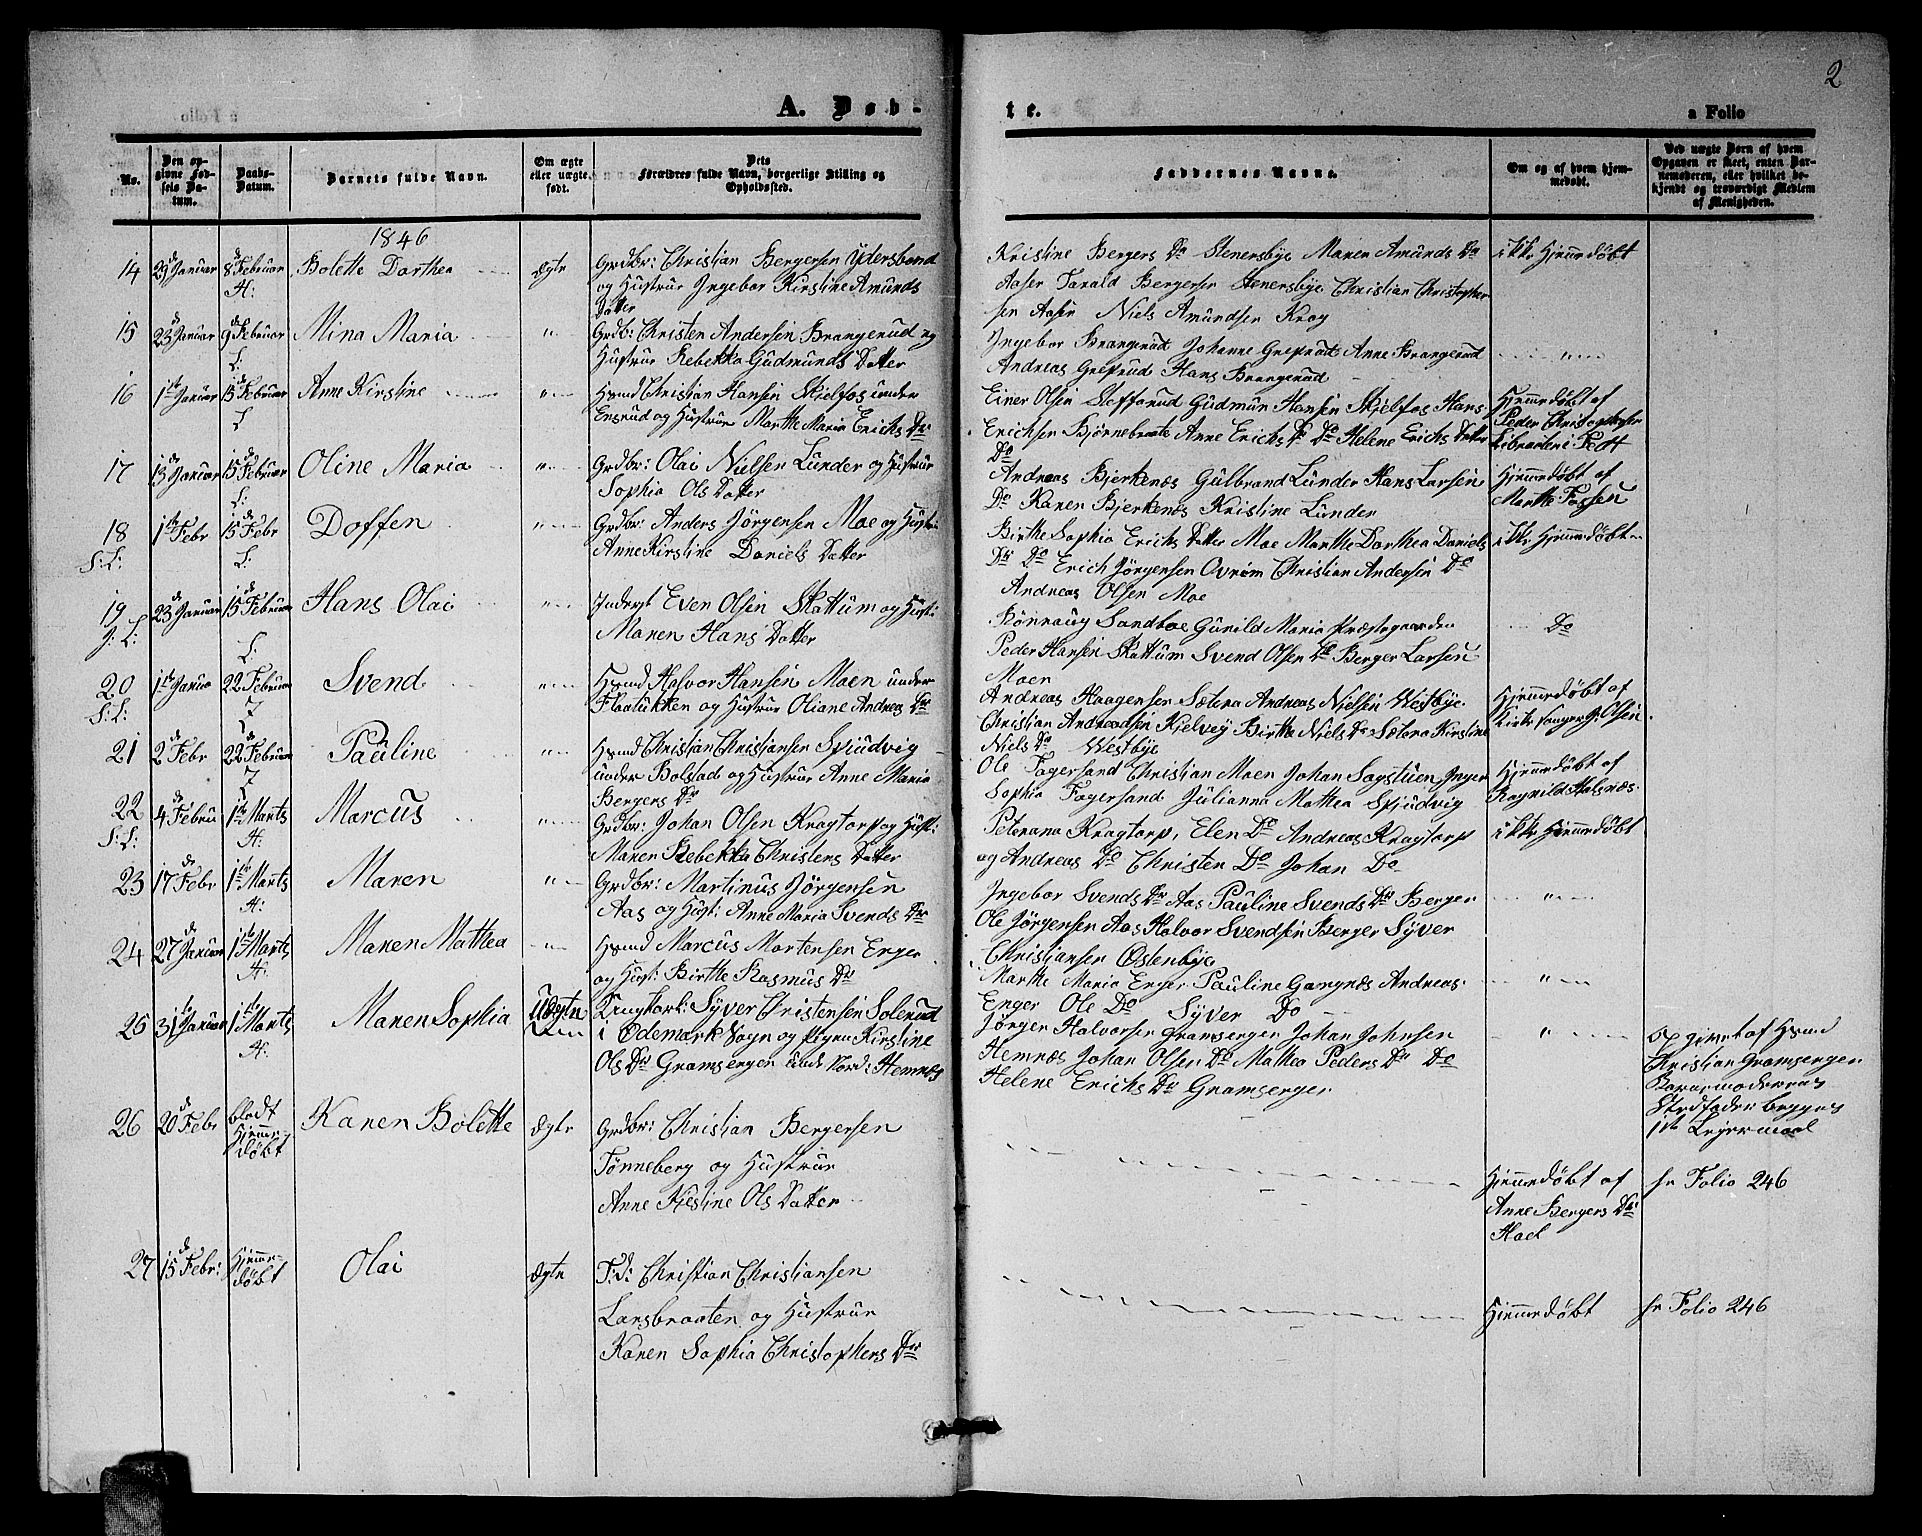 2
A. Døb-
te.
a Folio
No.
Den opgivne Fødsels Datum.
Daabs-Datum.
Barnets fulde Navn.
Om ægte eller uægte født.
Dets Forældres fulde Navn, borgerlige Stilling og Opholdssted.
Faddernes Navne.
Om og af hvem hjemmedøbt.
Ved uægte Børn af hvem Opgaven er skeet, enten Barnemoderen, eller hvilket bekjendt og troværdigt Medlem af Menigheden.
1846
14 29 Januar 8de Februar H: Bolette Dorthea ægte
Grdbr: Christian Bergersen Ydersbond
og Hustrue Ingebor Kirstine Amunds
Datter
Kristine Bergers Dr Stenersbye Maren Amunds Dr
Aaser Tarald Bergersen Stenersbye Christian Christopher
sen Aaser Niels Amundsen Krog
ikke Hjemmedøbt
15 23de Januar 9de Februar L: Mina Maria "
Grdb: Christen Andersen Brangerud og
Hustrue Rebekka Gudmunds Datter
Ingebor Brangerud Johanne Grefsrud Anne Brangerud
Andreas Grefsrud Hans Brangerud
"
16 1ste Januar 15de Februar L Anne Kirstine "
Hsmd Christian Hansen Skjelfos under
Ensrud og Hustrue Marthe Maria Erichs Dr
Einer Olsen Stofferud Gudmun Hansen Skjelfos Hans
Erichsen Bjørnebraate Anne Erichs Dr Do Helene Erichs Datter
Do
Hjemmedøbt af
Peder Christophersen
Libraaten i Fedt
17 13de Januar 15de Februar L: Oline Maria "
Grdbr: Olai Nielsen Lunder og Hustrue
Sophia Ols Datter
Andreas Bjerkenæs Gulbrand Lunder Hans Larsen
Do Karen Bjerkenæs Kristine Lunder
Hjemmedøbt af
Marthe Fossen
18 S:L: 1ste Febr 15de Febr L: Doffen "
Grdbr: Anders Jörgensen Moe og Hust:
Anne Kirstine Daniels Datter
Birthe Sophia Erichs Datter Moe Marthe Dorthea Daniels
Dr Do Erich Jörgensen Ovrom Christian Andersen Do
Andreas Olsen Moe
ikke Hjemmedøbt
19 J:L: 23de Januar 15de Februar L: Hans Olai "
Inderst Even Olsen Skattum og Hust:
Maren Hans Datter
Rönnaug Sandboe Gunild Maria Præstegaarden
Peder Hansen Skattum Svend Olsen Do Berger Larsen
Moen
Do
20 S:L: 1ste Janua 22 Februar Svend "
Hsmd Halvor Hansen Moen under
Flaatukken og Hustrue Oliane Andreas Dr
Andreas Haagensen Sætera Andreas Nielsen Westbye
Christian Andreassen Kjelvey Birthe Niels Dr Sætera Kirstine
Niels Dr Westbye
Hjemmedøbt af
Kirkesanger G. Olsen
21 2de Febr 22de Februar Pauline "
Hsmd Christian Christiansen Spiudvig
under Bolstad og Hustrue Anne Maria
Bergers Dr
Ole Fagersand Christian Moen Johan Sagstuen Inger
Sophia Fagersand Julianna Mathea Spiudvig
Hjemmedøbt af
Ragnild Halsnæs
22 S:L: 4de Febru 1ste Marts H: Marcus "
Grdbr: Johan Olsen Kragtorp og Hust:
Maren Rebekka Christens Datter
Peterana Kragtorp, Elen Do Andreas Kragtorp
og Andreas Do Christen Do Johan Do
ikke Hjemmedøbt
23 17de Febr 1ste Marts H: Maren "
Grdbr: Martinus Jörgensen
Aas og Hust: Anne Maria Svends Dr
Ingebor Svends Dr Aas Pauline Svends Dr Berger
Ole Jörgensen Aas Halvor Svendsen Berger Syver
Christiansen Østenbye
"
24 27de Januar 1ste Marts H: Maren Mathea "
Hsmd Marcus Mortensen Enger
og Hust: Birthe Rasmus Dr
Marthe Maria Enger Pauline Gangnæs Andreas
Enger Ole Do Syver Do
"
25 31te Januar 1ste Marts H: Maren Sophia Uægte
Ungkarl: Syver Christensen Solerud
i Ødemark Sogn og Pigen Kirstine
Ols Dr Gramsergen unde Nord: Hemnæs
Jörgen Halvorsen Gramsergen Johan Johnsen
Hemnæs Johan Olsen Do Mathea Peders Dr Do
Helene Erichs Dr Gramserger
"
Opgivet af Hsmd
Christian Gramsergen
Barnemoderens
Stedfader begges
1ste Leiermaal
26 20de Febr Blodt Hjemmedøbt Karen Bolette ægte
Grdbr: Christian Bergersen
Tønneberg og Hustrue
Anne Kirstine Ols Datter
Hjemmedøbt af
Anne Bergers Dr
Hoel
se Folio 246
27 15de Febr: Hjemmedøbt Olai ægte
T:d: Christian Christiansen
Larsbraaten og Hustrue
Karen Sophia Christophers Dr
Hjemmedøbt
se Folio 246